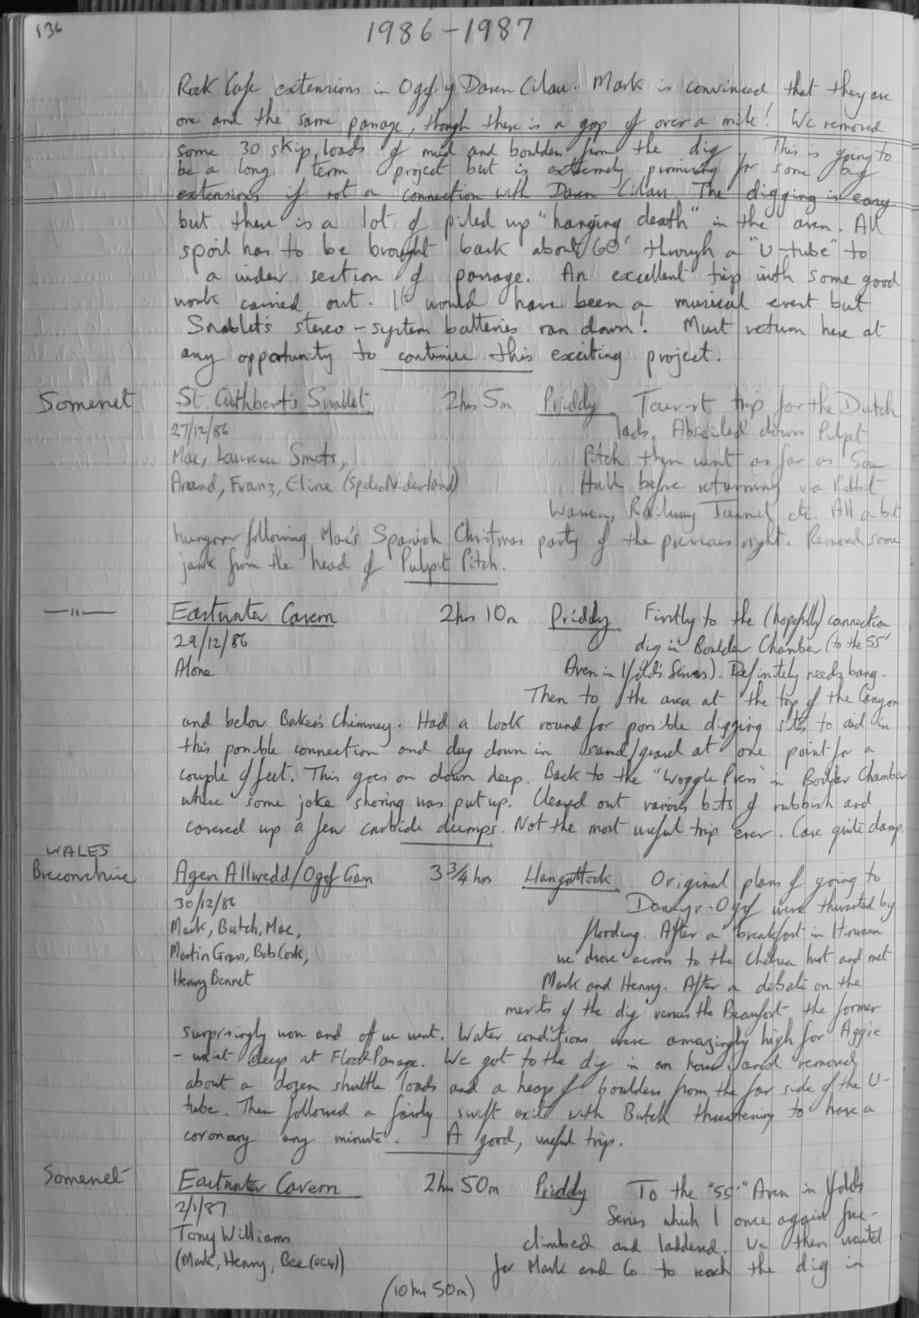 136
1986-1987
Rock Cafe extensions in Ogof y Daren Cilau. Mark is convinced that they are
one and the same passage, though there is a gap of over a mile! We removed
some 30 skip loads of mud and boulders from the dig. This is going to
be a long term project but is extremely promising for some big
extensions if not a connection with Daren Cilau. The digging is easy
but there is a lot of piled up "hanging death" in the aven. All
spoil has to be brought back about 60' through a "U-tube" to
a wider section of passage. An excellent trip with some good
work carried out. It would have been a musical event but
Snablet's stereo-system batteries ran down! Must return here at
any opportunity to continue this exciting project.
Somerset St. Cuthbert's Swallet 2hrs 5m Priddy Tourist trip for the Dutch
27/12/86 lads. Abseiled down Pulpit
Mac, Laurence Smets, Pitch then went as far as
Arend, Franz, Eline (Speleo Nederland) Hall before returning via Rabbit
Warren, Railway Tunnel etc. All a bit
hungover following Mac's Spanish Christmas party of the previous night. Removed some
junk from the head of Pulpit Pitch.
—"— Eastwater Cavern 2hrs 10m Priddy Firstly to the (hopefully) connection
29/12/86 dig in Boulder Chamber (to the 55'
Alone Aven in Ifold's Series). Definitely needs bang.
Then to the area at the top of the Canyon
and below Baker's Chimney. Had a look round for possible digging sites to aid in
this possible connection and dug down in sand/gravel at one point for a
couple of feet. This goes on down deep. Back to the "Woggle Press" in Boulder Chamber
where some joke shoring was put up. Cleared out various bits of rubbish and
covered up a few carbide dumps. Not the most useful trip ever. Cave quite damp.
WALES
Breconshire Agen Allwedd/Ogof Gam 3¾ hrs Llangattock Original plans of going to
30/12/86 Dan-yr-Ogof were thwarted by
Mark, Butch, Mac, flooding. After a breakfast in
Martin Grass, Bob Cork, we drove across to the Chelsea hut and met
Henry Bennet Mark and Henry. After a debate on the
merits of the dig versus the Beaufort the former
surprisingly won and off we went. Water conditions were amazingly high for Aggie
- waist deep at Flood Passage. We got to the dig in an hour and removed
about a dozen shuttle loads and a heap of boulders from the far side of the U-
tube. Then followed a fairly swift exit with Butch threatening to have a
coronary any minute. A good, useful trip.
Somerset Eastwater Cavern 2hrs 50m Priddy To the "55'" Aven in Ifold's
2/1/87 Series which I once again free-
Tony Williams climbed and laddered. We then waited
(Mark, Henry, Bee) for Mark and Co to reach the dig in
(10hrs 50m)